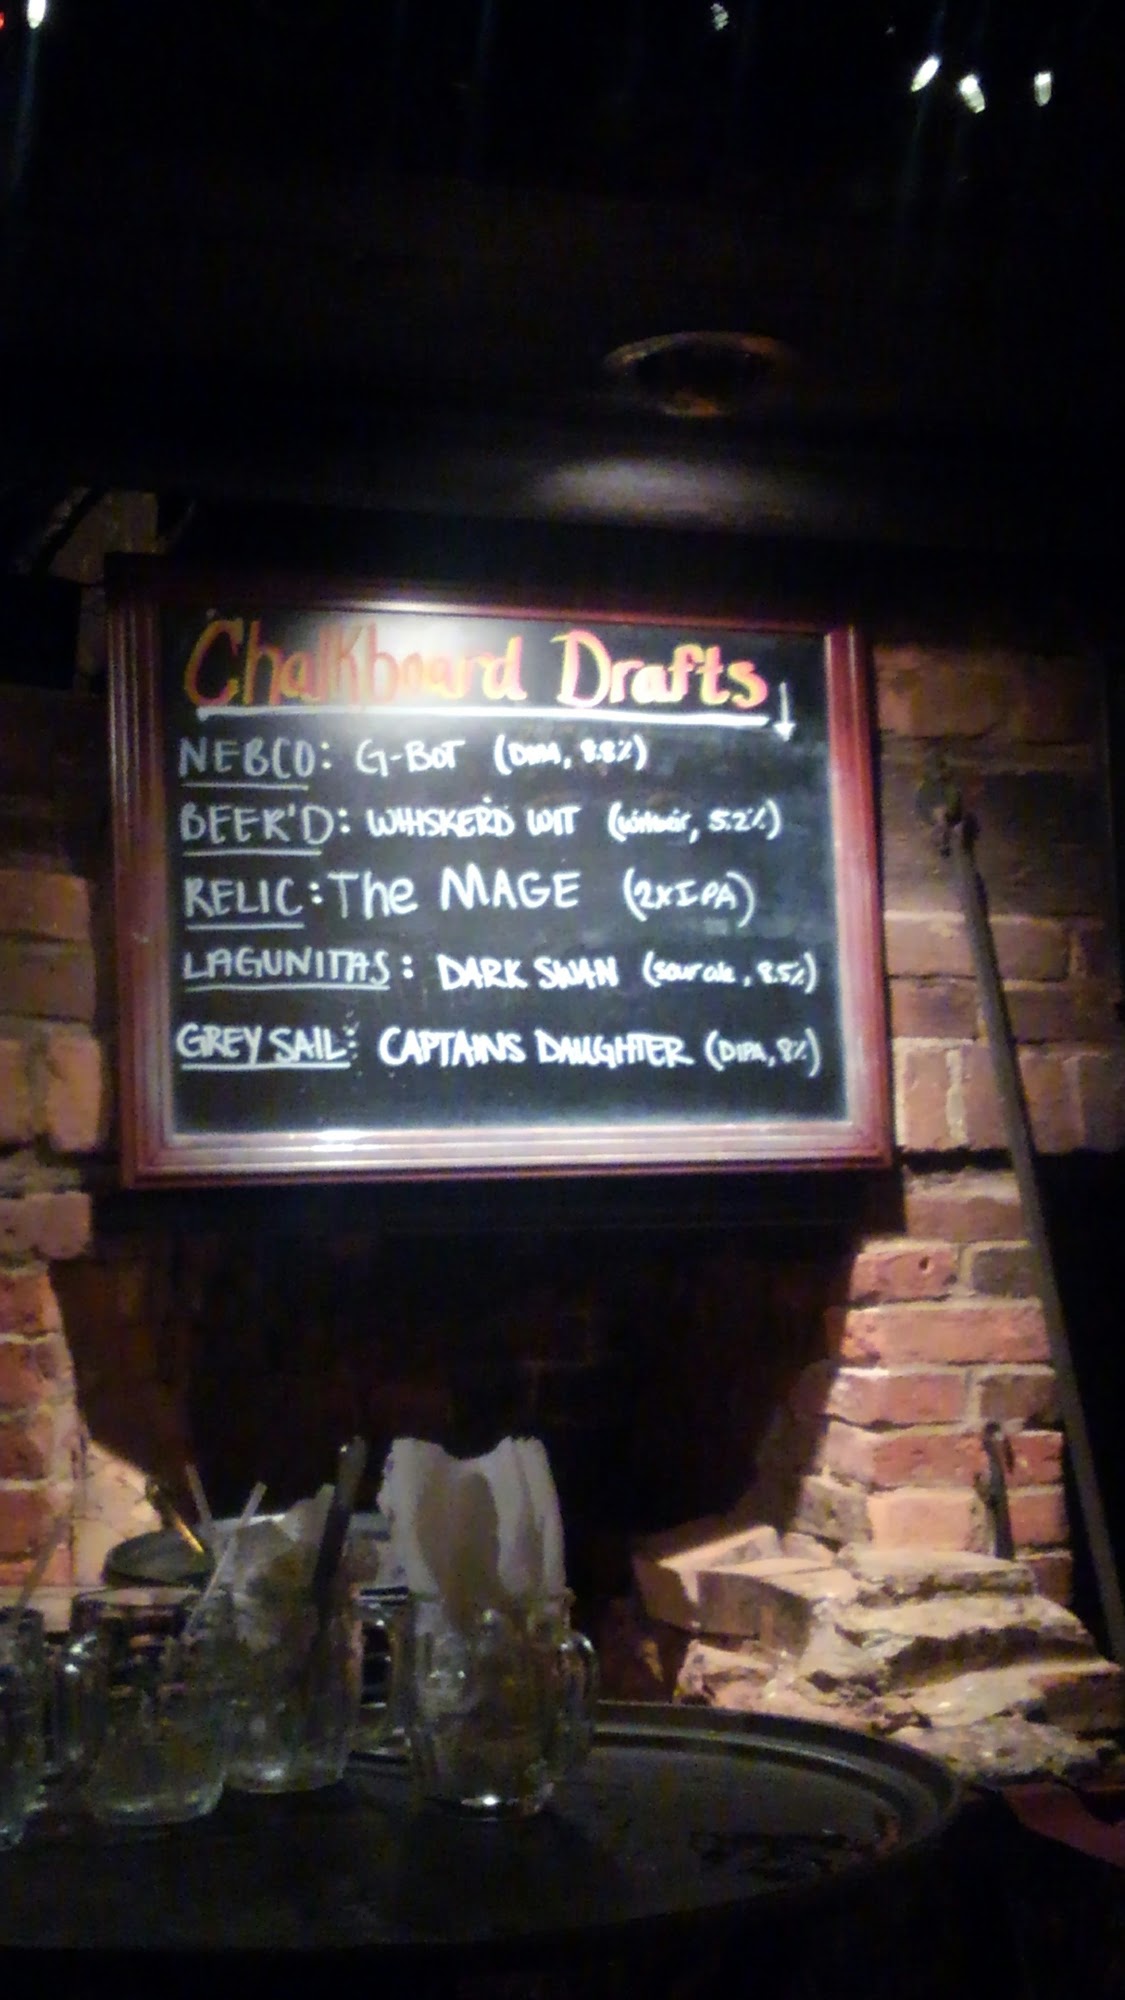 Chalkboard Drafts
NEBCO: G-BOT (DIPA, 8.8%)
BEER'D: WHISKER'D WIT (witbier, 5.2%)
RELIC: The MAGE (2XIPA)
LAGUNITAS: DARK SWAN (sour ale, 8.5%)
GREY SAIL: CAPTAINS DAUGHTER (DIPA, 8%)